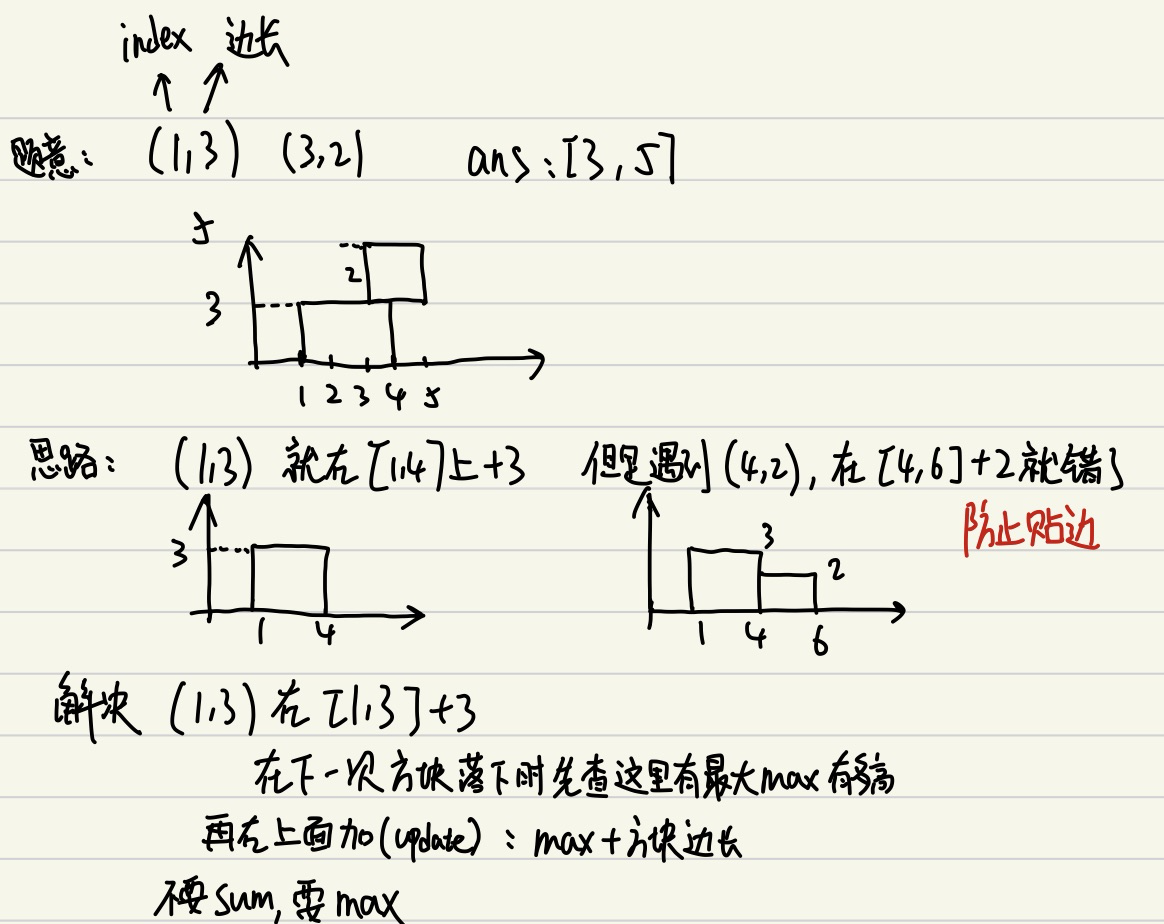 index 边长
题意: (1,3) (3,2) ans:[3,5]
5
2
3
1 2 3 4 5
思路: (1,3) 就在 [1,4]上+3 但是遇到(4,2),在[4,6]+2就错了
防止贴边
3
3
2
1 4
1 4 6
解决 (1,3) 在 [1,3]+3
在下一次方块落下时先查这里有最大max有多高
再在上面加(update): max+方块边长
不要sum,要max